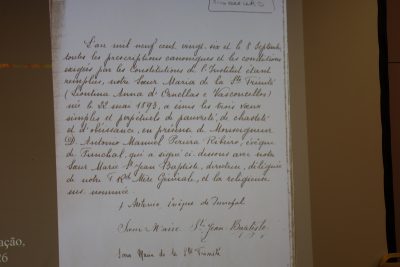 L'an mil neuf cent vingt-six et le 8 Septembre
toutes les prescriptions canoniques et les conditions
exigées par les Constitutions de l'Institut étant
remplies, notre Sœur Maria de la Ste Trinité
(Leontina Anna d'Ornellas e Vasconcellos)
née le 22 mai 1893, a émis les trois vœux
simples et perpétuels de pauvreté, de chasteté
et d'obéissance, en présence de Monseigneur
D. Antonio Manuel Pereira Ribeiro, évêque
de Funchal, qui a signé ci-dessous avec notre
Sœur Marie St Jean Baptiste, directrice, déléguée
de notre T. Rde Mère Générale, et la religieuse
sus nommée.
† Antonio, Evêque de Funchal
Sœur Marie St Jean Baptiste
Sœur Marie de la Ste Trinité
ação,
26